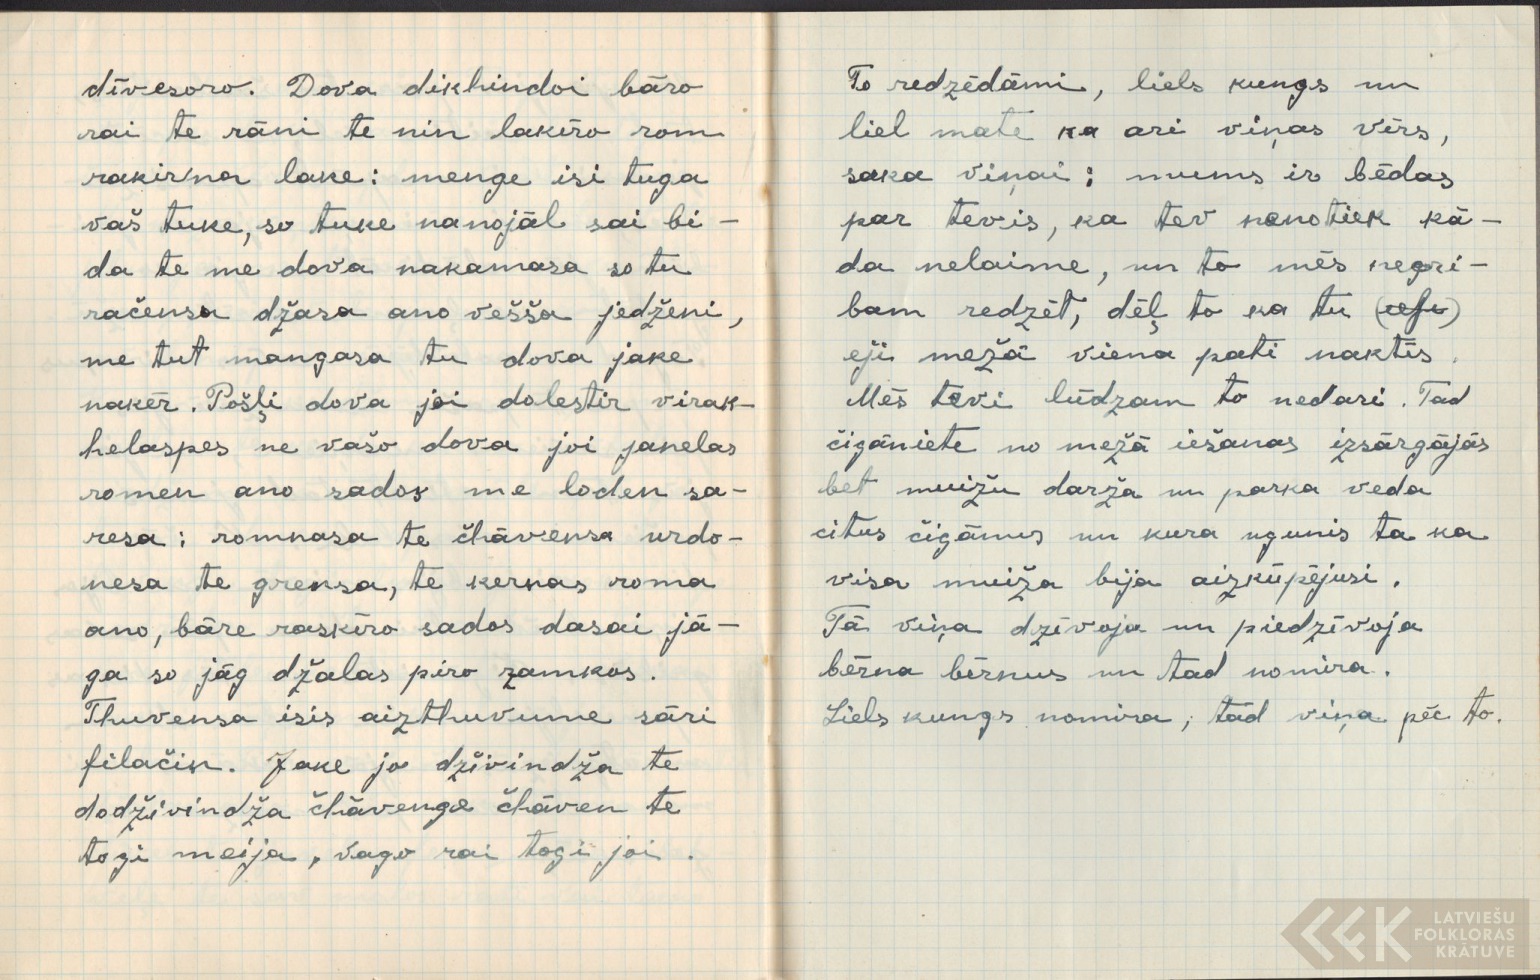 dīvesoro. Dova dikhindoi bāro
rai te rāni te nin lakīro rom
rakirna lake: menge isi tuga
vaš tuke, so tuke nanojāl sai bi-
da te me dova nakamasa so tu
račensa džasa ano vešša jedženi,
me tut mangasa tu dova jake
nakēr. Pošļi dova joi dolestir virak-
helaspes ne vašo dova joi janelas
romen ano sados me loden sa-
resa: romnasa te čhāvensa urdo-
nesa te grensa, te kernas roma
ano, bāre raskīro sados dasai jā-
ga so jāg džalas piro zamkos.
Thuvensa isis aizthuvume sāri
filačin. Jake jo dživindža te
dodživindža čhāvenge čhāven te
togi meija, vago rai togi joi.
To redzēdāmi, liels kungs un
liel mate ka ari viņas vērs,
saka viņai: mums ir bēdas
par tevis, ka tev nenotiek kā-
da nelaime, un to mēs negri-
bam redzēt, dēļ to ka tu
eji mežā viena pati naktīs.
Mēs tevi lūdzam to nedari. Tad
čigāniete no mežā iešanas izsārgājās
bet muižu darža un parka veda
citus čigānus un kura ugunis ta ka
visa muiža bija aizkūpējusi.
Tā viņa dzīvoja un piedzīvoja
bērna bērnus un tad nomira.
Liels kungs nomira, tād viņa pēc to.
LATVIEŠU
FOLKLORAS
KRĀTUVE